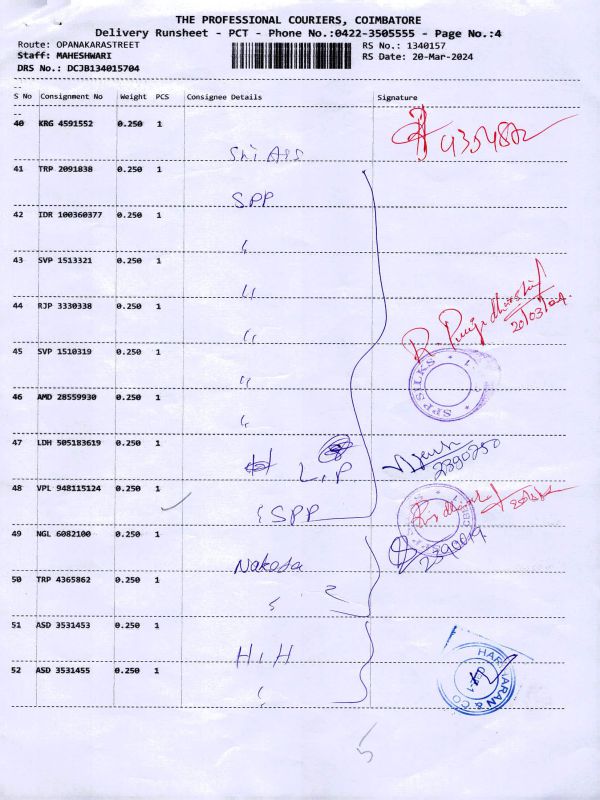 THE PROFESSIONAL COURIERS, COIMBATORE
Delivery Runsheet - PCT - Phone No.:0422-3505555 - Page No.:4
Route: OPANAKARASTREET RS No.: 1340157
Staff: MAHESHWARI RS Date: 20-Mar-2024
DRS No.: DCJB134015704
S No Consignment No Weight PCS Consignee Details Signature
40 KRG 4591552 0.250 1
41 TRP 2091838 0.250 1
SPP
42 IDR 100360377 0.250 1
43 SVP 1513321 0.250 1
44 RJP 3330338 0.250 1
20/03/24.
45 SVP 1510319 0.250 1
SPP SILKS
46 AMD 28559930 0.250 1
47 LDH 505183619 0.250 1
L.P
2390250
48 VPL 948115124 0.250 1
SPP
49 NGL 6082100 0.250 1
Nakoda
50 TRP 4365862 0.250 1
51 ASD 3531453 0.250 1
H.H
52 ASD 3531455 0.250 1